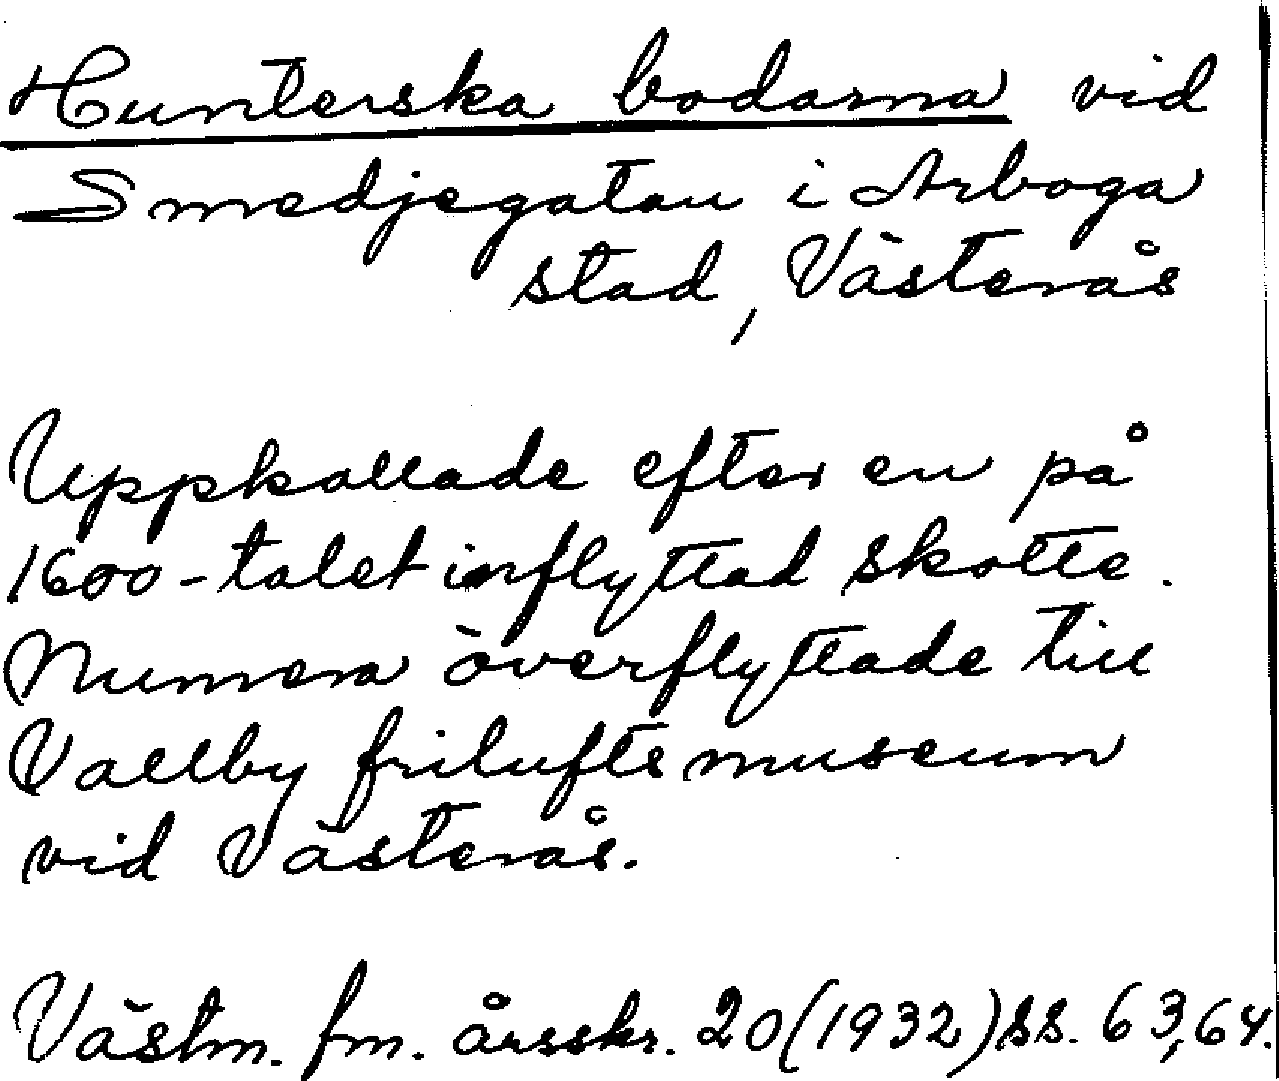 Hunterska bodarna vid
Smedjegatan i Arboga
stad, Västerås
Uppkallade efter en på
1600-talet inflyttad skotte.
Numera överflyttade till
Vallby friluftsmuseum
vid Västerås.
Västm. fm. årsskr. 20(1932)ss. 63,64.